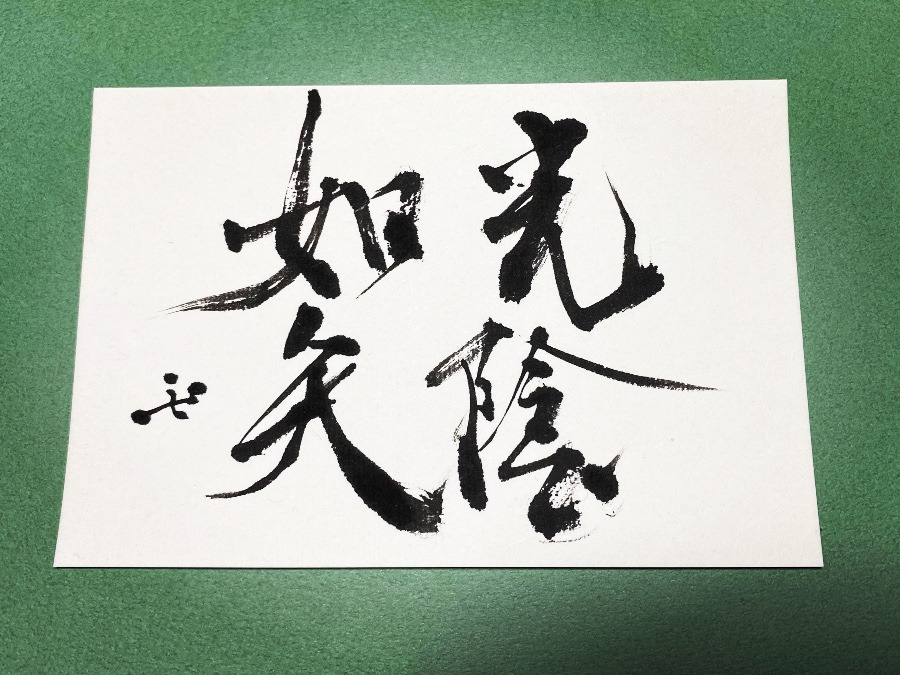 光陰
如矢